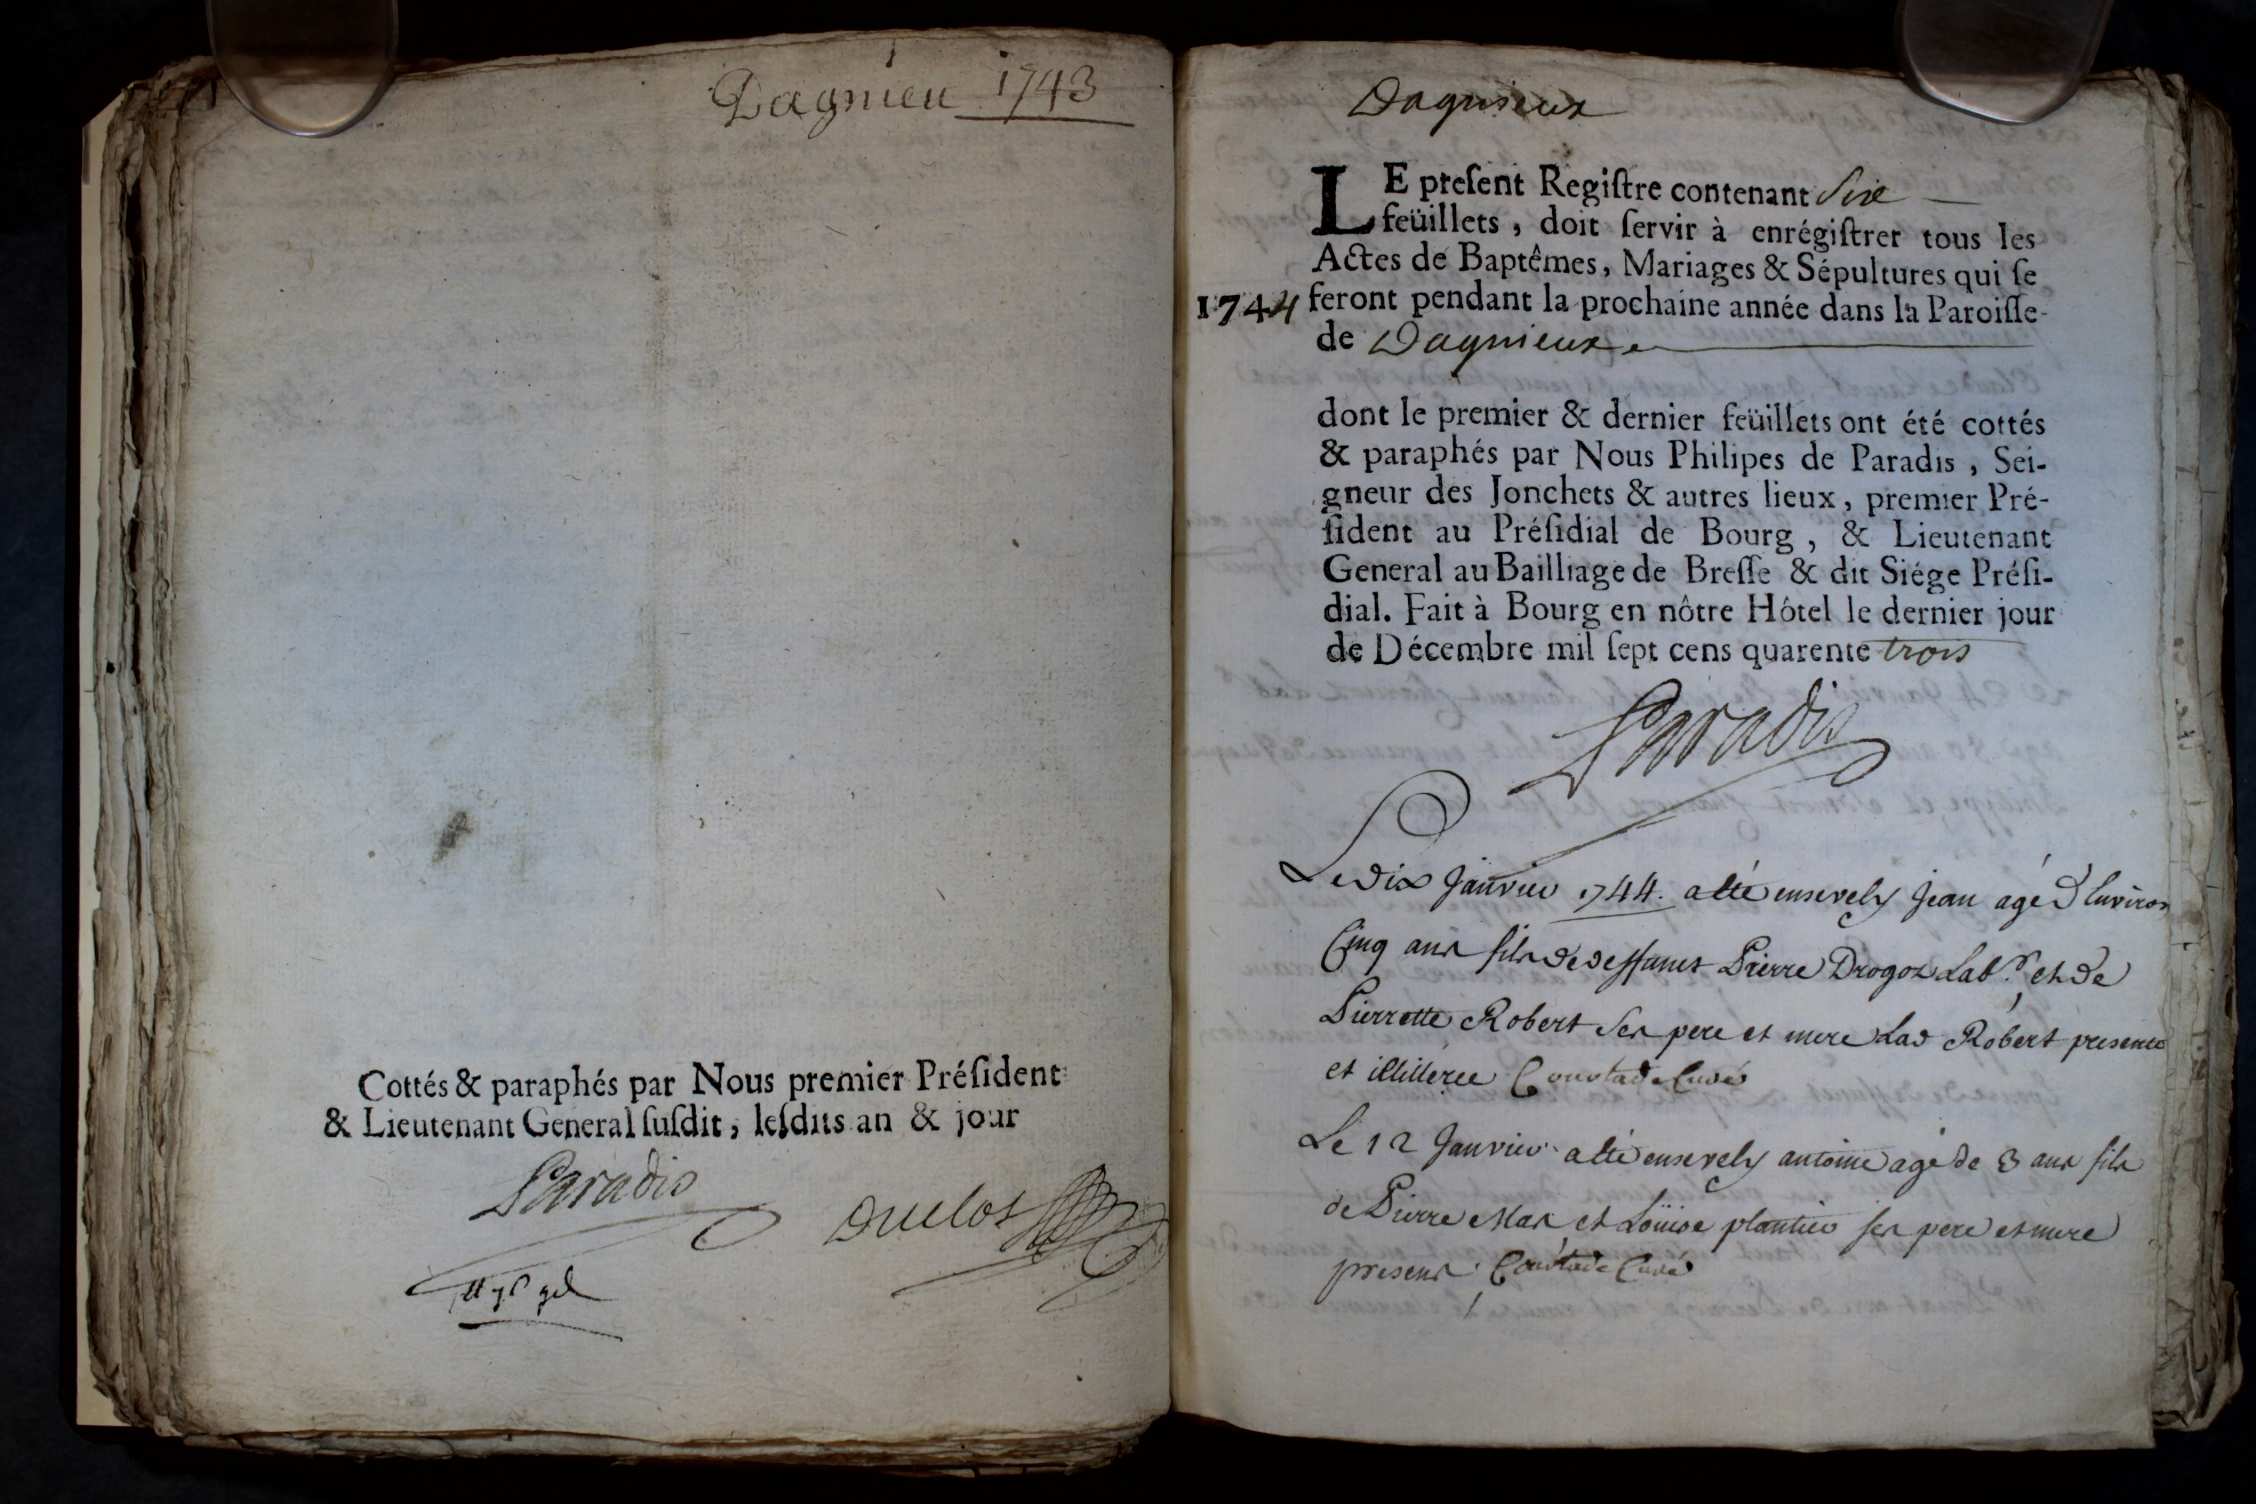 Dagnieu 1743
Cottés & paraphés par Nous premier Préſident
& Lieutenant General ſuſdit, leſdits an & jour
Paradis
Duclos
Dagnieux
LE preſent Regiſtre contenant Six
feüillets, doit ſervir à enrégiſtrer tous les
Actes de Baptêmes, Mariages & Sépultures qui ſe
1744 feront pendant la prochaine année dans la Paroiſſe
de Dagnieux
dont le premier & dernier feüillets ont été cottés
& paraphés par Nous Philipes de Paradis, Sei-
gneur des Jonchets & autres lieux, premier Pré-
ſident au Préſidial de Bourg, & Lieutenant
General au Bailliage de Breſſe & dit Siége Préſi-
dial. Fait à Bourg en nôtre Hôtel le dernier jour
de Décembre mil ſept cens quarente trois
Paradis
Le dix Janvier 1744. a eté ensevely Jean agé d'Environ
Cinq ans fils de deffunct Pierre Drogoz Labr. et de
Pierrette Robert Ses pere et mere Lad Robert presente
et illiteree Courtade Curé
Le 12 Janvier a eté ensevely antoine agé de 3 ans fils
de Pierre Mas et Loüise plantier ses pere et mere
presens. Courtade Curé